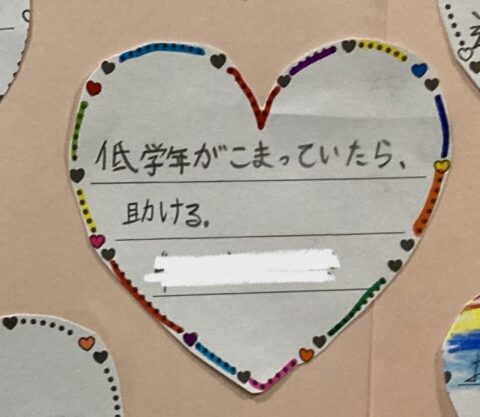 低学年がこまっていたら、
助ける。